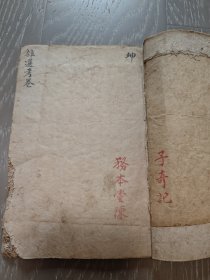 雜選考卷
坤
務本堂潔
子奇記